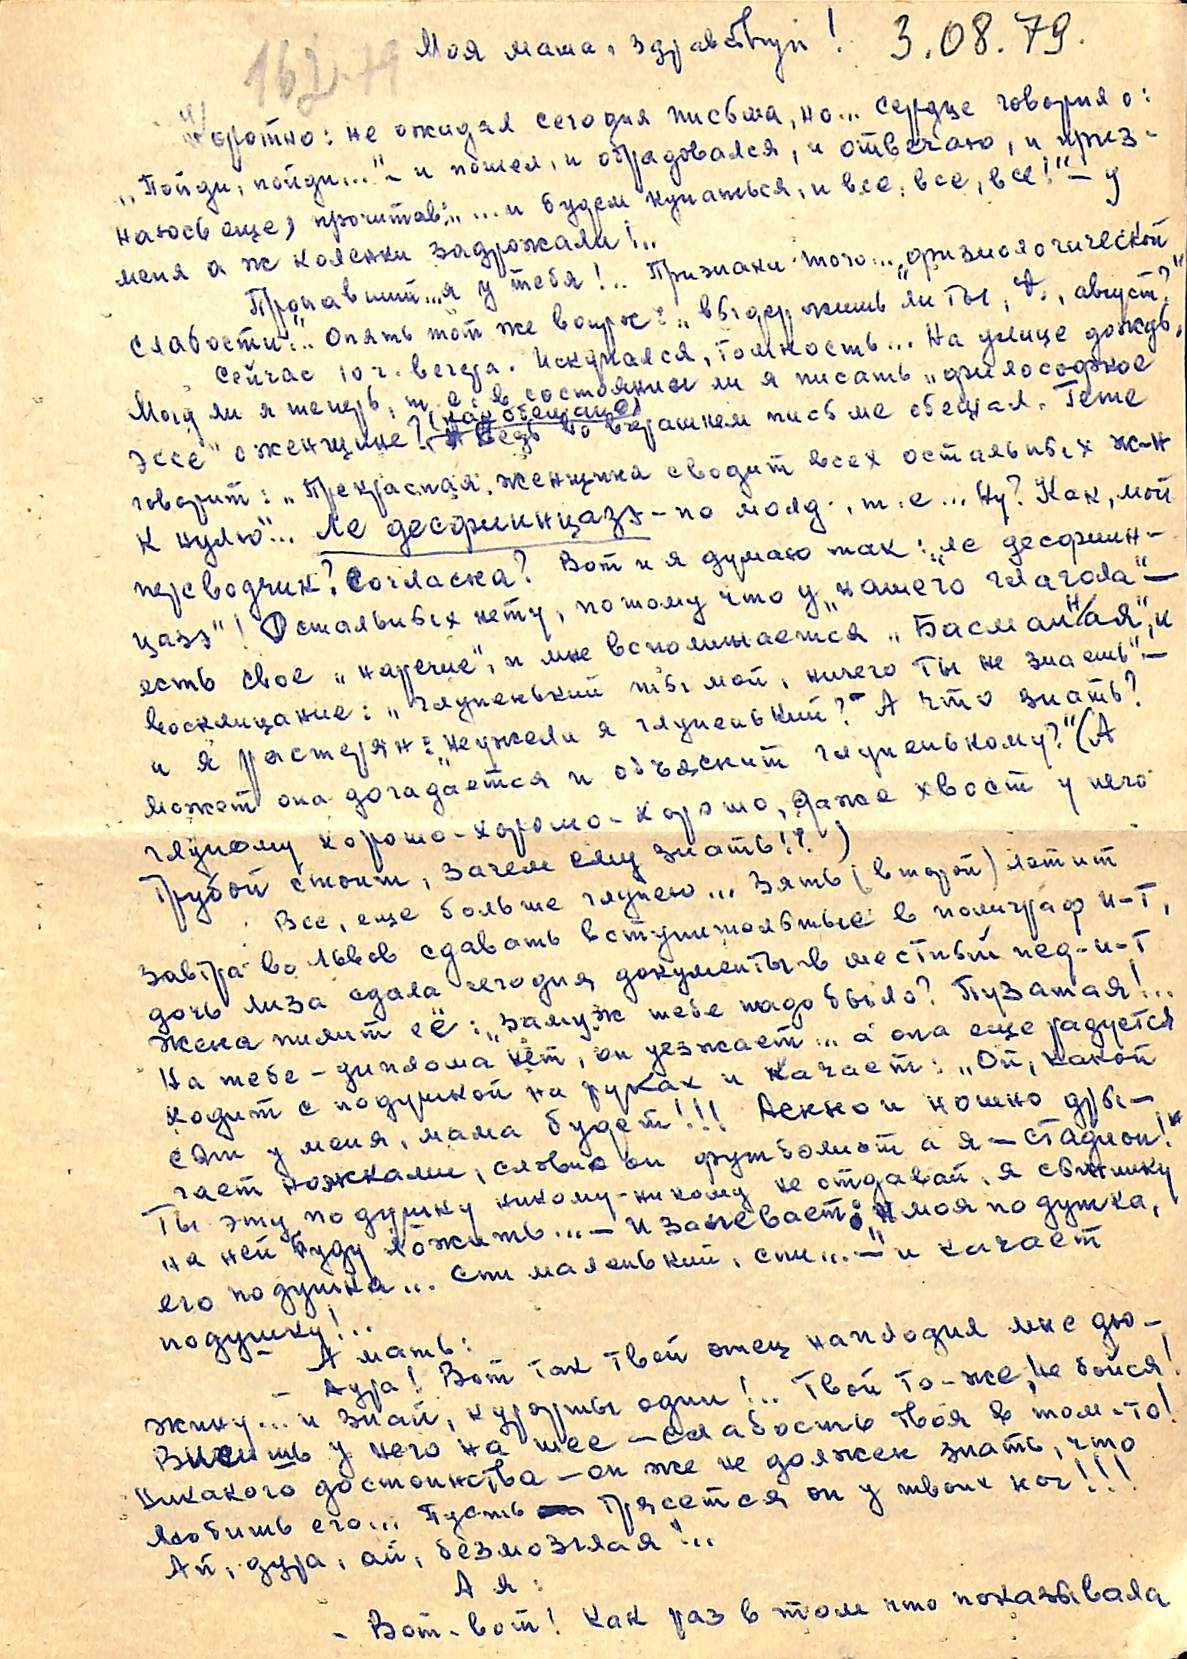 Моя маша, здравствуй! 3.08.79.
162-79
Коротко: не ожидал сегодня письма, но... сердце говорило:
„Пойди, пойди..."– и пошел, и обрадовался, и отвечаю, и приз-
наюсь еще, прочитав: „...и будем купаться, и все, все, все!"– у
меня аж коленки задрожали!..
Пропавший... я у тебя!.. Признаки того... „физиологической
слабости". Опять тот же вопрос: „выдержишь ли ты, август?"
Сейчас 10 ч. вечера. Искупался, томность... На улице дождь.
Могу ли я теперь, т.е. в состоянии ли я писать „философское
эссе" о женщине? (как обещано) Ведь во вчерашнем письме обещал. Гете
говорит: „Прекрасная женщина сводит всех остальных ж-н
к нулю"... Ле десфиинцазэ – по молд., т.е... Ну? Как, мой
переводчик? Согласна? Вот и я думаю так: „ле десфиин-
цазэ"! Остальных нету, потому что у „нашего глагола"–
есть свое „наречие", и мне вспоминается „Басманная", и
восклицание: „Глупенький ты мой, ничего ты не знаешь"–
и я растерян: „неужели я глупенький?" А что знать?
Может она догадается и объяснит глупенькому?" (А
глупому хорошо-хорошо-хорошо, даже хвост у него
трубой стоит, зачем ему знать!?)
Все, еще больше глупею... Зять (второй) летит
завтра во Львов сдавать вступительные в полиграф и-т,
дочь лиза сдала сегодня документы в местный пед-и-т
Жена пилит её: „Замуж тебе надо было? Пузатая!..
На тебе – диплома нет, он уезжает... а она еще радуется
ходит с подушкой на руках и качает: „Ой, какой
сын у меня, мама будет!!! Денно и ношно дры-
гает ножками, словно он футболист а я – стадион!"
Ты эту подушку никому-никому не отдавай, я сынишку
на ней буду ложить... – и запевает: „моя подушка,
его подушка... Спи маленький, спи..."– и качает
подушку!..
А мать:
– Дура! Вот так твой отец наплодил мне дю-
жину... и знай, курорты один!.. Твой то-же, не бойся!
Висишь у него на шее – слабость твоя в том-то!
Никакого достоинства – он же не должен знать, что
любишь его... Пусть трясется он у твоих ног!!!
Ай, дура, ай, безмозглая!..
А я:
– Вот-вот! Как раз в том что показывала